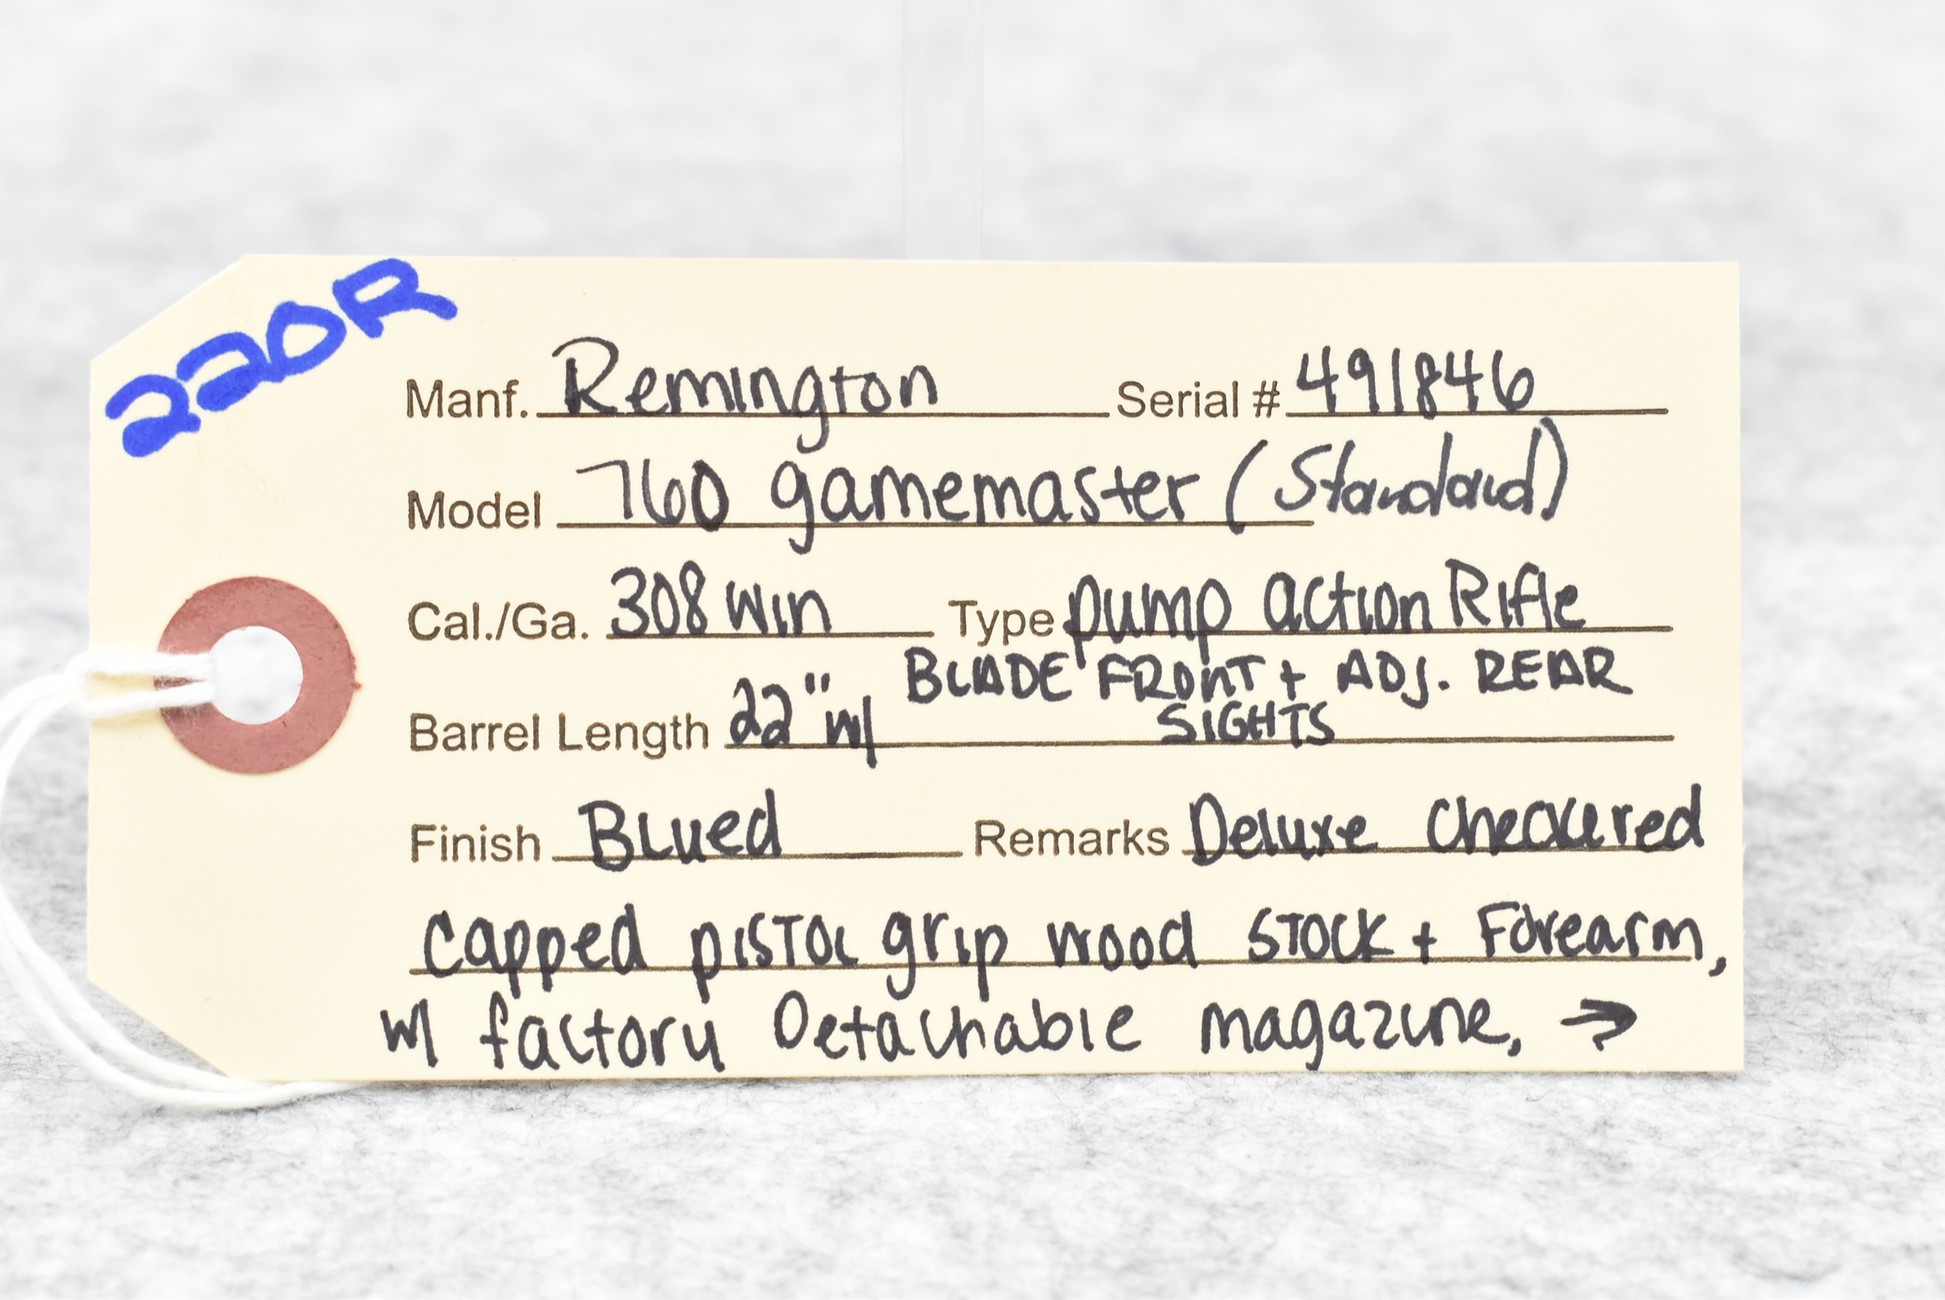 220R
Manf. Remington Serial # 491846
Model 760 gamemaster (Standard)
Cal./Ga. 308 win Type pump action Rifle
BLADE FRONT + ADJ. REAR
Barrel Length 22" w/ SIGHTS
Finish Blued Remarks Deluxe checkered
capped pistol grip wood stock + Forearm,
w/ factory Detachable magazine, →